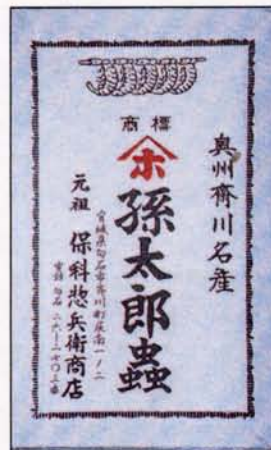 奥州齋川名産
商標
ホ
孫太郎蟲
宮城県白石市斉川町屋南一ノ二
元祖 保科惣兵衛商店
電話 白石 二六―二七〇三番